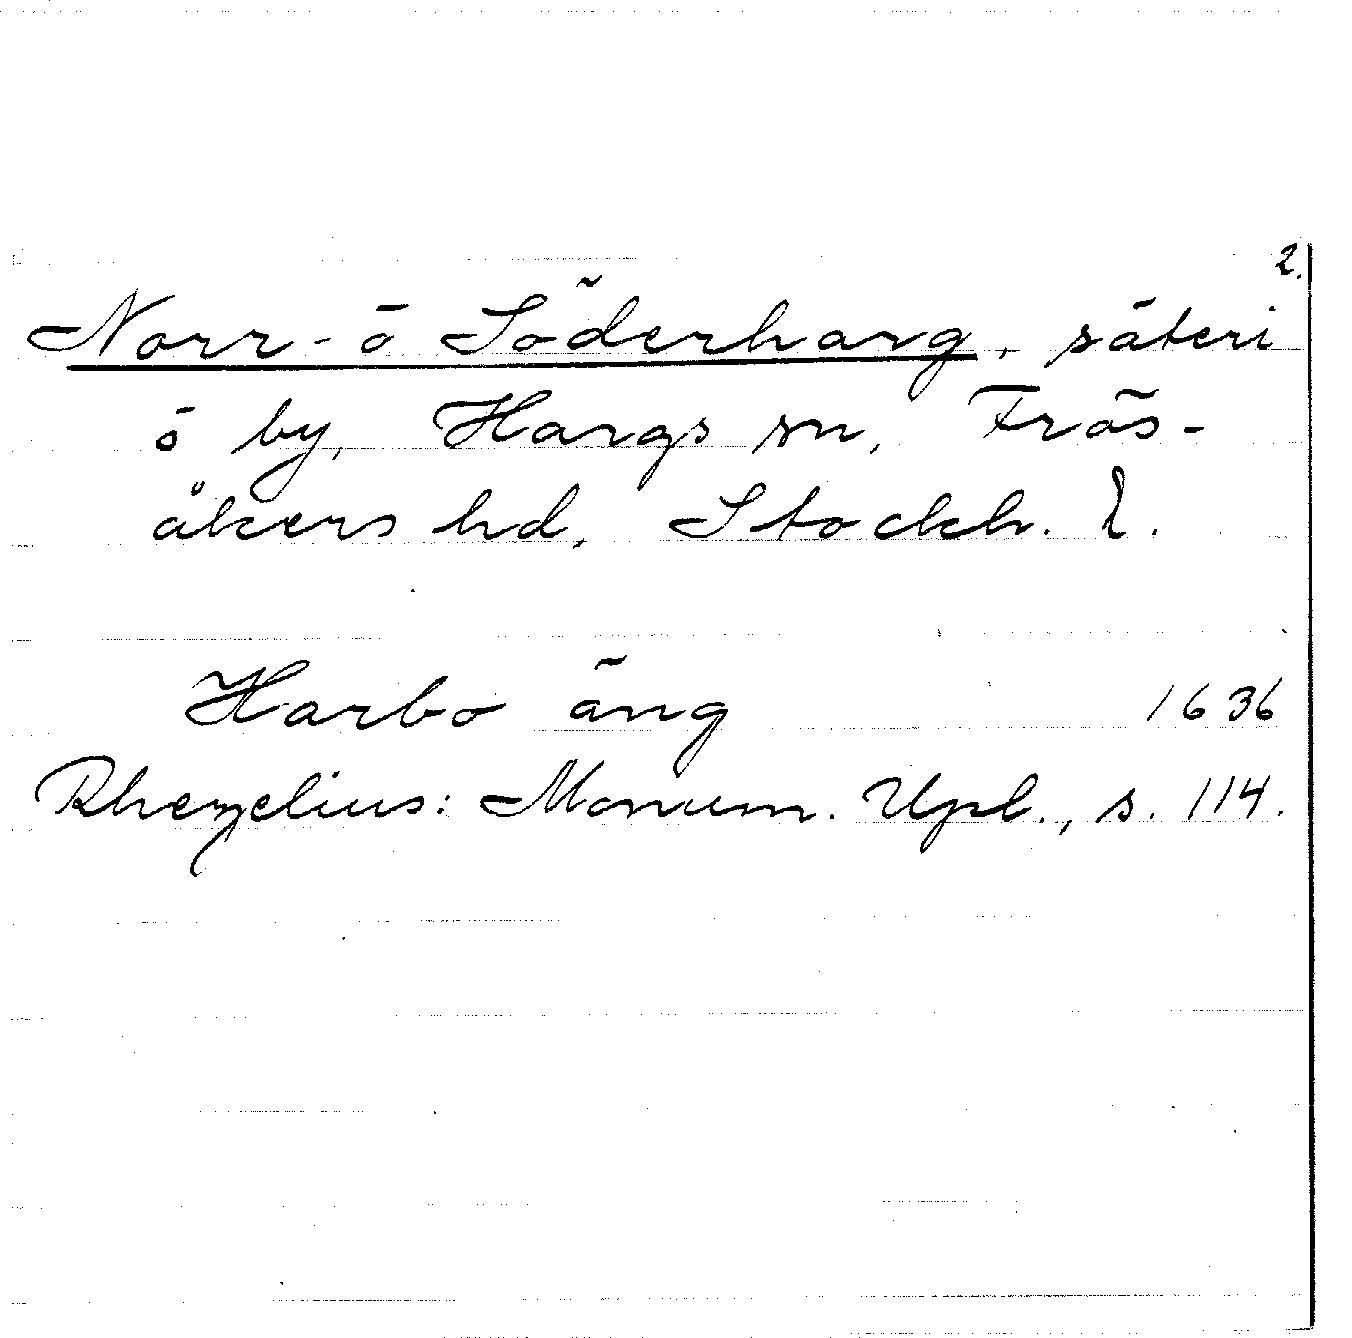 2.
Norr- o Söderharg, säteri
o by, Hargs sn, Frös-
åkers hd, Stockh. l.
Harbo äng 1636
Rhezelius: Monum. Upl., s. 114.